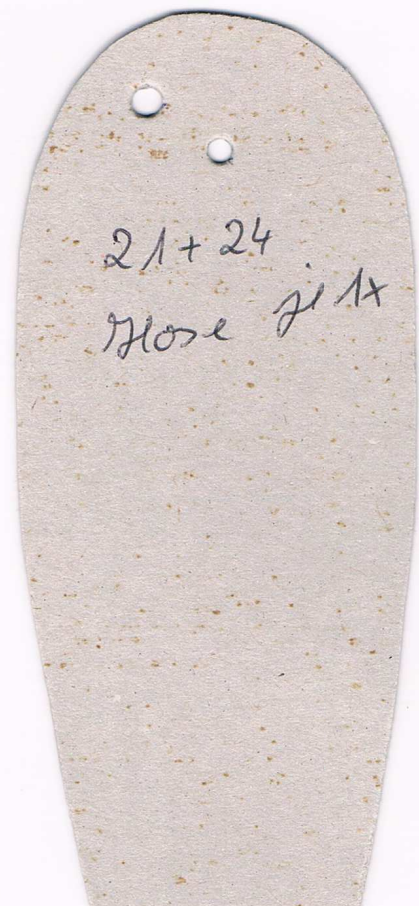 21+24
Hose je 1x